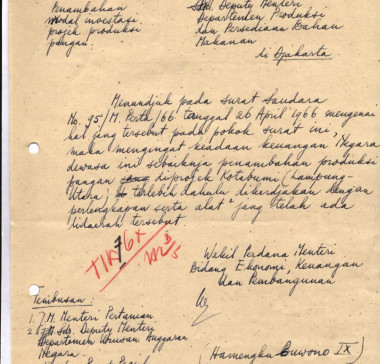 Penambahan
modal investasi
projek produksi
pangan.
Sdr. Deputy Menteri
Departemen Produksi
dan Persediaan Bahan
Makanan
di Djakarta
Menundjuk pada surat Saudara
No. 95/M. Perta/66 tanggal 26 April 1966 mengenai
hal jang tersebut pada pokok surat ini,
maka mengingat keadaan keuangan Negara
dewasa ini sebaiknja penambahan produksi
pangan di projek Kotabumi (Lampung-
Utara) terlebih dahulu dikerdjakan dengan
perlengkapan serta alat² jang telah ada
didaerah tersebut
TIK 6x
Wakil Perdana Menteri
Bidang Ekonomi, Keuangan
dan Pembangunan
Tembusan:
1. J.M. Menteri Pertanian
2. Sdr. Deputy Menteri
Departemen Urusan Anggaran
Negara.
(Hamengku Buwono IX)